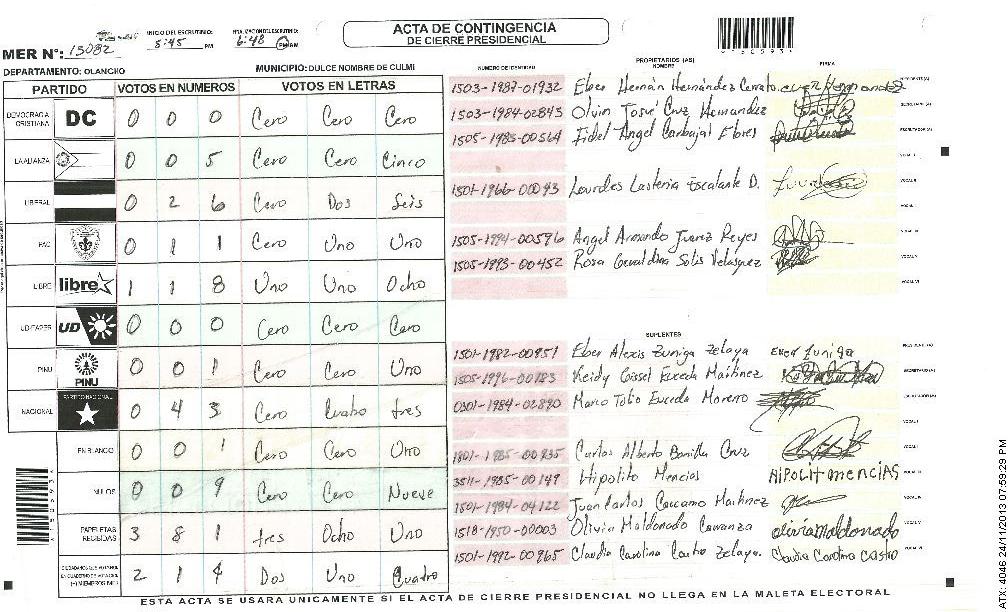 ACTA DE CONTINGENCIA
DE CIERRE PRESIDENCIAL
MER N°: 15082
INICIO DEL ESCRUTINIO:
5:45 PM
6:48 PM AM
DEPARTAMENTO: OLANCHO
MUNICIPIO: DULCE NOMBRE DE CULMI
PARTIDO VOTOS EN NUMEROS VOTOS EN LETRAS
DEMOCRACIA CRISTIANA DC 0 0 0 Cero Cero Cero
LA ALIANZA 0 0 5 Cero Cero Cinco
LIBERAL 0 2 6 Cero Dos Seis
PAC 0 1 1 Cero Uno Uno
LIBRE libre 1 1 8 Uno Uno Ocho
UD-FAPER UD 0 0 0 Cero Cero Cero
PINU PINU 0 0 1 Cero Cero Uno
NACIONAL PARTIDO NACIONAL 0 4 3 Cero Cuatro tres
EN BLANCO 0 0 1 Cero Cero Uno
NULOS 0 0 9 Cero Cero Nueve
PAPELETAS RECIBIDAS 3 8 1 tres Ocho Uno
2 1 4 Dos Uno Cuatro
PROPIETARIOS (AS)
NUMERO DE IDENTIDAD NOMBRE FIRMA
1503-1987-01932 Eber Hernán Hernández Cerrato
1503-1984-02843 Olvin Josué Cruz Hernandez
1505-1983-00564 Fidel Angel Carbajal Flores
1501-1966-00093 Lourdes Lasteria Escalante D.
1505-1994-00596 Angel Armando Juarez Reyes
1505-1993-00452 Rosa Geraldina Solis Velasquez
SUPLENTES
1501-1982-00951 Eber Alexis Zuniga Zelaya Ever Zuniga
1505-1996-00183 Keidy Gissel Euceda Martinez
0801-1984-02890 Marco Tulio Euceda Moreno
1801-1985-00935 Carlos Alberto Bonilla Cruz
3511-1985-00149 Hipolito Mencias HIPOLITO mencIAS
1501-1984-04122 Juan Carlos Carcamo Martinez
1518-1950-00003 Olivia Maldonado Carranza olivia maldonado
1501-1992-00965 Claudia Carolina Castro Zelaya. Claudia Carolina Castro
ESTA ACTA SE USARA UNICAMENTE SI EL ACTA DE CIERRE PRESIDENCIAL NO LLEGA EN LA MALETA ELECTORAL
ATX 4046 24/11/2013 07:59:29 PM